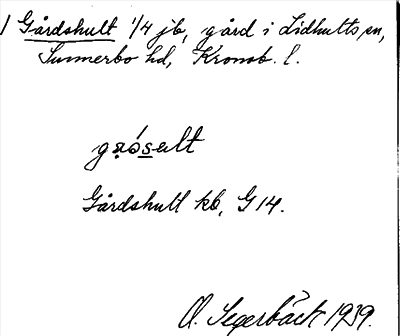 1 Gårdshult 1/4 jb, gård i Lidhults sn,
Sunnerbo hd, Kronob. l.
Gårdshult kb, G 14.
O. Segerbäck 1939.